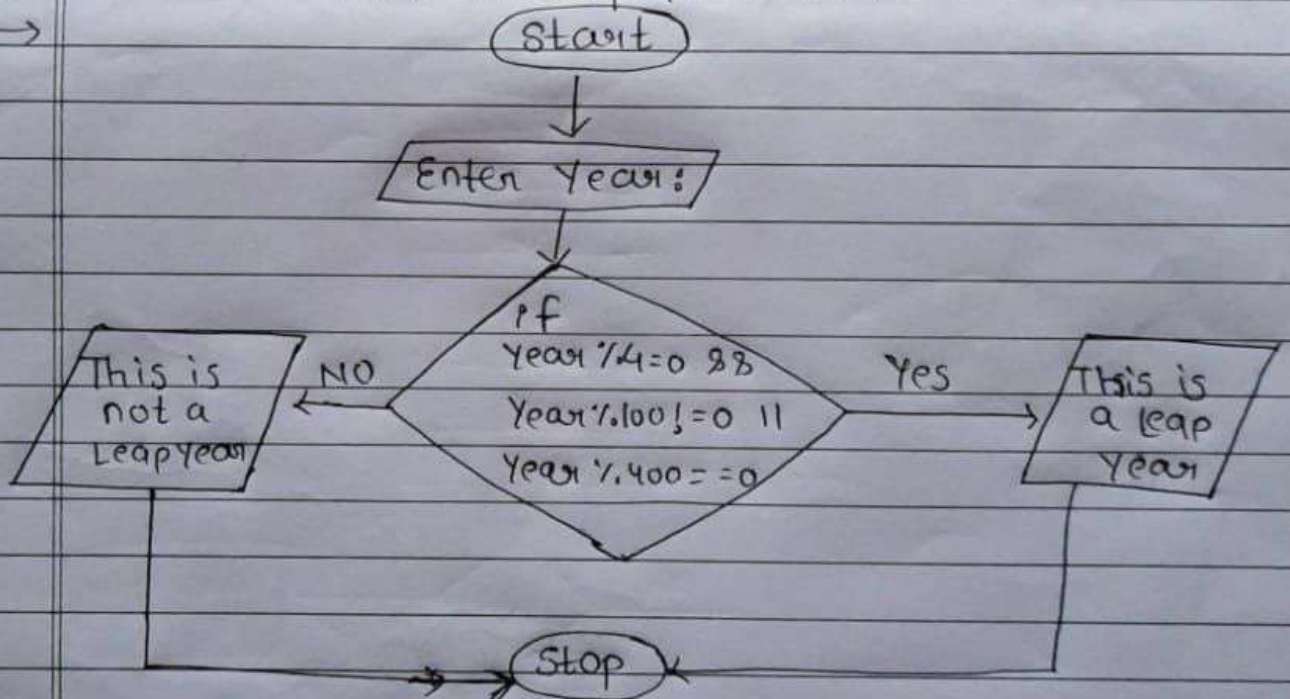 Start
Enter Year:
if
Year %4=0 &&
Year %100!=0 ||
Year %400==0
NO
Yes
This is
not a
Leap year
This is
a leap
year
Stop